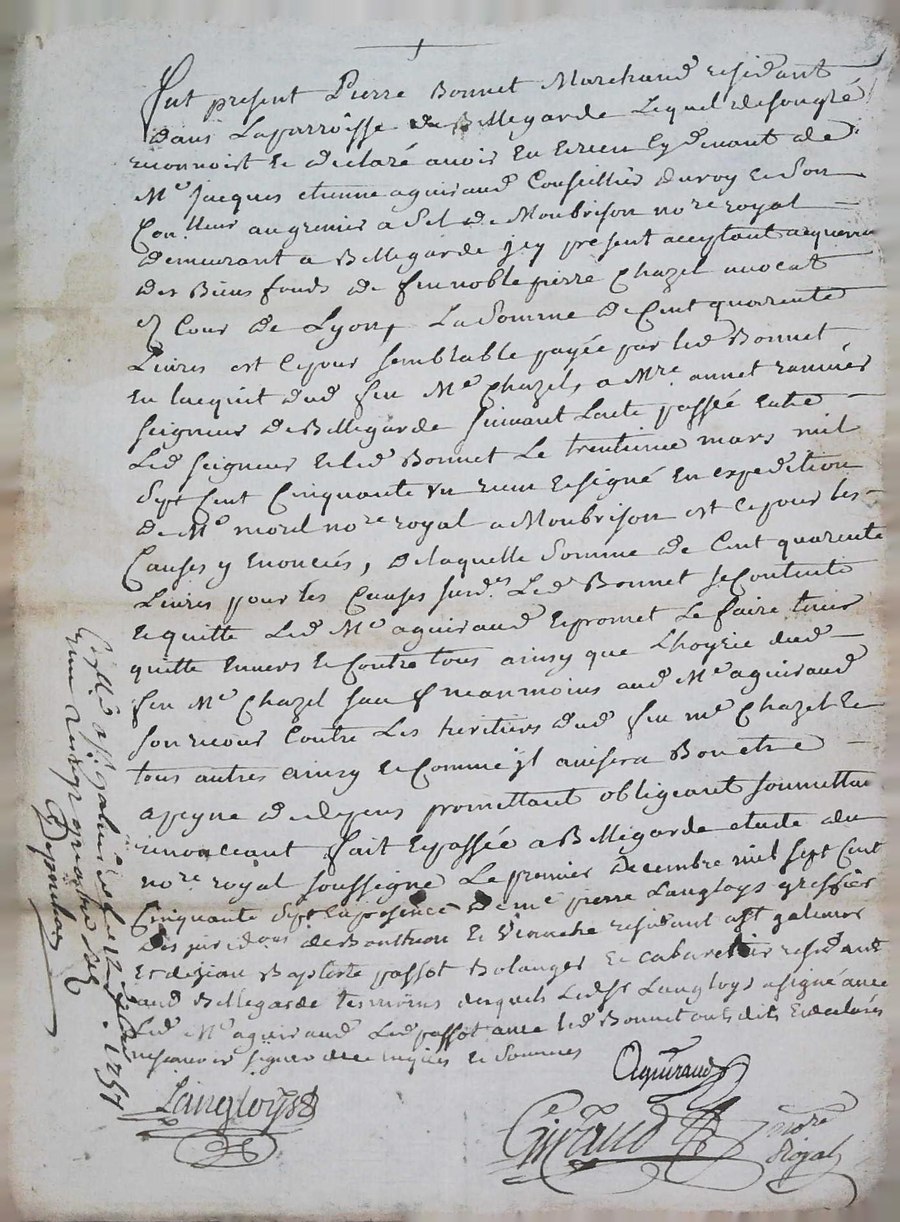 Fut present Pierre Bonnet Marchand residant
dans Laparroisse de Bellegarde Lequel de son gré
reconnoist et declaré avoir eu et receu cy devant de
Me Jacques etienne aguiraud Conseillier du roy et son
Con.lleur au grenier a Sel de Monbrison nore royal
demeurant a Bellegarde jcy present acceptant acquereur
des Biens fonds de feu noble pierre Chazel avocat
en Cour de Lyon, La Somme de Cent quarente
Livres et est ce pour semblable payée par led Bonnet
en lacquit dud feu Me Chazel, a Mre annet ranvier
seigneur de Bellegarde suivant Lacte passée entre
Led seigneur et led Bonnet Le trentunie mars mil
Sept Cent Cinquante un receu et signé en expedition
de Me morel nore royal a Monbrison et est ce pour les
Causes y enoncées, de laquelle Somme de Cent quarente
Livres pour les Causes susd.es Led Bonnet se Contente
et quitte Led Me aguiraud et promet Le faire tenir
quitte envers et Contre tous ainsy que Lhoyrie dud
feu Me Chazel sauf neanmoins aud Me aguiraud
son recour Contre Les heritiers dud feu me Chazel et
tous autres ainsy et Comme jl avisera Bon etre
a peyne de depens promettant obligeant soumettant
renonceant fait et passée a Bellegarde etude du
nore royal soussigné Le premier Decembre mil sept Cent
Cinquante Sept en presence de me pierre Langloys greffier
des juridons de Bontheon et Veauche residant a St galmier
et de jean Baptiste passot Bolanger et cabaretier residant
aud Bellegarde temoins desquels Led Sr Langloys a signé avec
Led Me aguiraud Led passot avec led Bonnet ont dits et declarés
ne scavoir signer de ce enquis et sommés
Aguiraud
Langloys
Giraud nore
Royal
Collé a St galmier le 12 Xbre 1757
receu